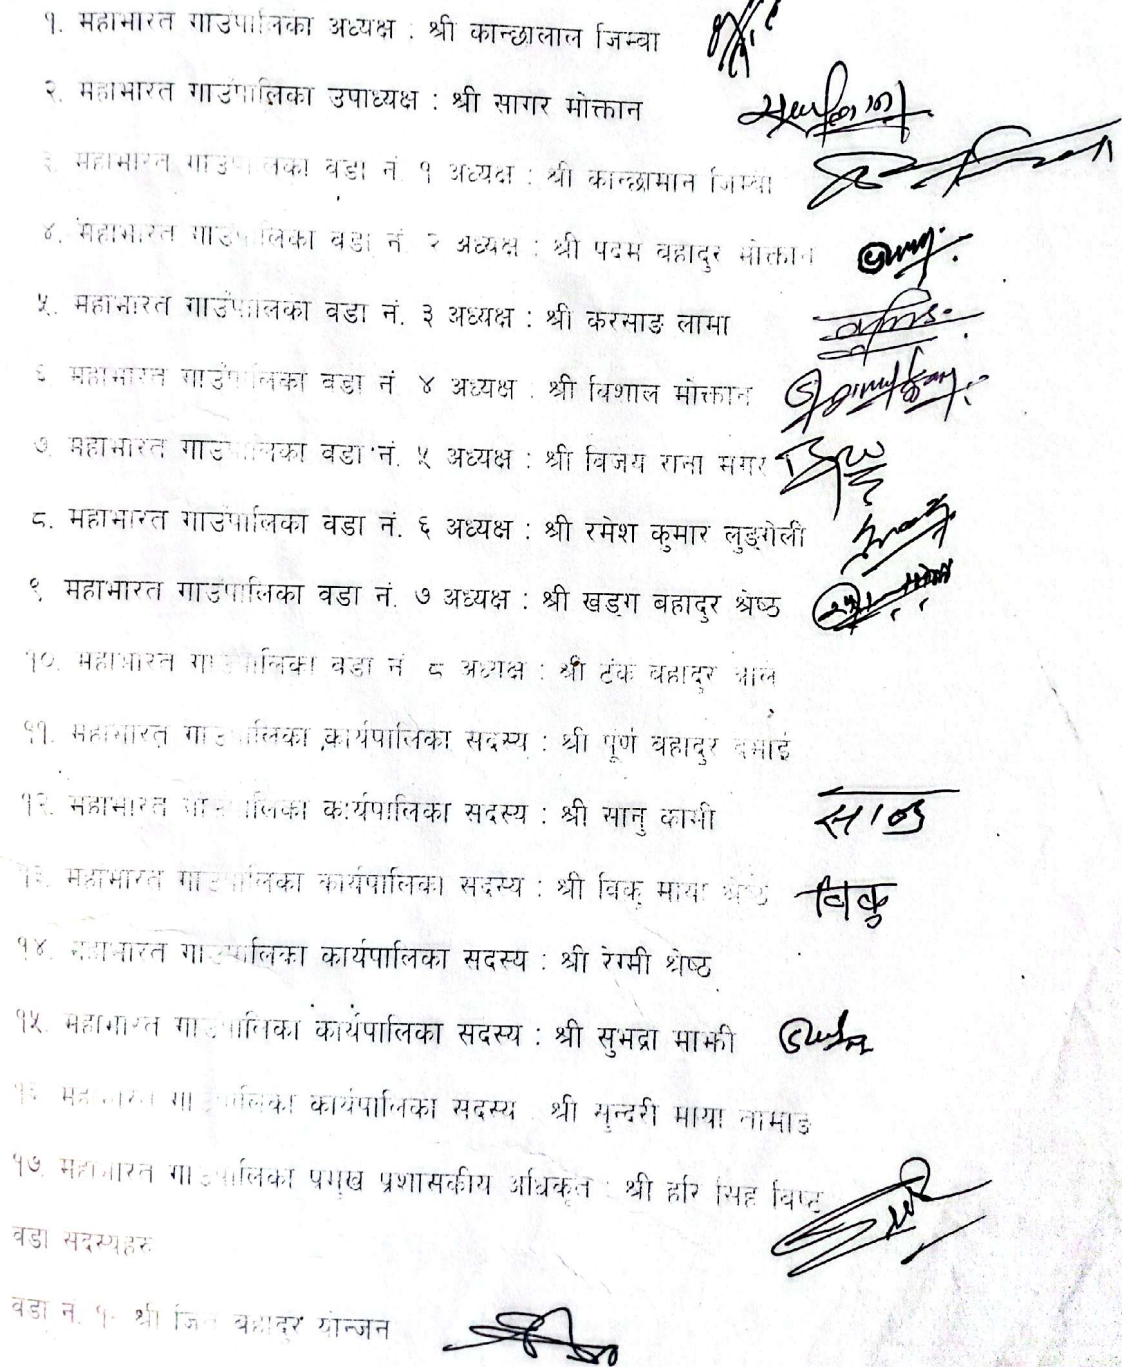 १. महाभारत गाउँपालिका अध्यक्ष : श्री कान्छालाल जिम्वा
२. महाभारत गाउँपालिका उपाध्यक्ष : श्री सागर मोक्तान
३. महाभारत गाउँपालिका वडा नं. १ अध्यक्ष : श्री कान्छामान जिम्वा
४. महाभारत गाउँपालिका वडा नं. २ अध्यक्ष : श्री पदम बहादुर मोक्तान
५. महाभारत गाउँपालिका वडा नं. ३ अध्यक्ष : श्री करसाङ लामा
६ महाभारत गाउँपालिका वडा नं ४ अध्यक्ष : श्री विशाल मोक्तान
७. महाभारत गाउँपालिका वडा नं. ५ अध्यक्ष : श्री विजय राना मगर
८. महाभारत गाउँपालिका वडा नं. ६ अध्यक्ष : श्री रमेश कुमार लुङ्गेली
९ महाभारत गाउँपालिका वडा नं. ७ अध्यक्ष : श्री खड्ग बहादुर श्रेष्ठ
१०. महाभारत गाउँपालिका वडा नं ८ अध्यक्ष : श्री टंक बहादुर आले
११. महाभारत गाउँपालिका कार्यपालिका सदस्य : श्री पूर्ण बहादुर दमाई
१२. महाभारत गाउँपालिका कार्यपालिका सदस्य : श्री सानु कामी सानु
१३. महाभारत गाउँपालिका कार्यपालिका सदस्य : श्री विकु माया श्रेष्ठ विकु
१४. महाभारत गाउँपालिका कार्यपालिका सदस्य : श्री रेग्मी श्रेष्ठ
१५. महाभारत गाउँपालिका कार्यपालिका सदस्य : श्री सुभद्रा माझी
१६. महाभारत गाउँपालिका कार्यपालिका सदस्य : श्री सुन्दरी माया तामाङ
१७. महाभारत गाउँपालिका प्रमुख प्रशासकीय अधिकृत : श्री हरि सिंह विष्ट
वडा सदस्यहरु
वडा नं. १- श्री बहादुर योन्जन